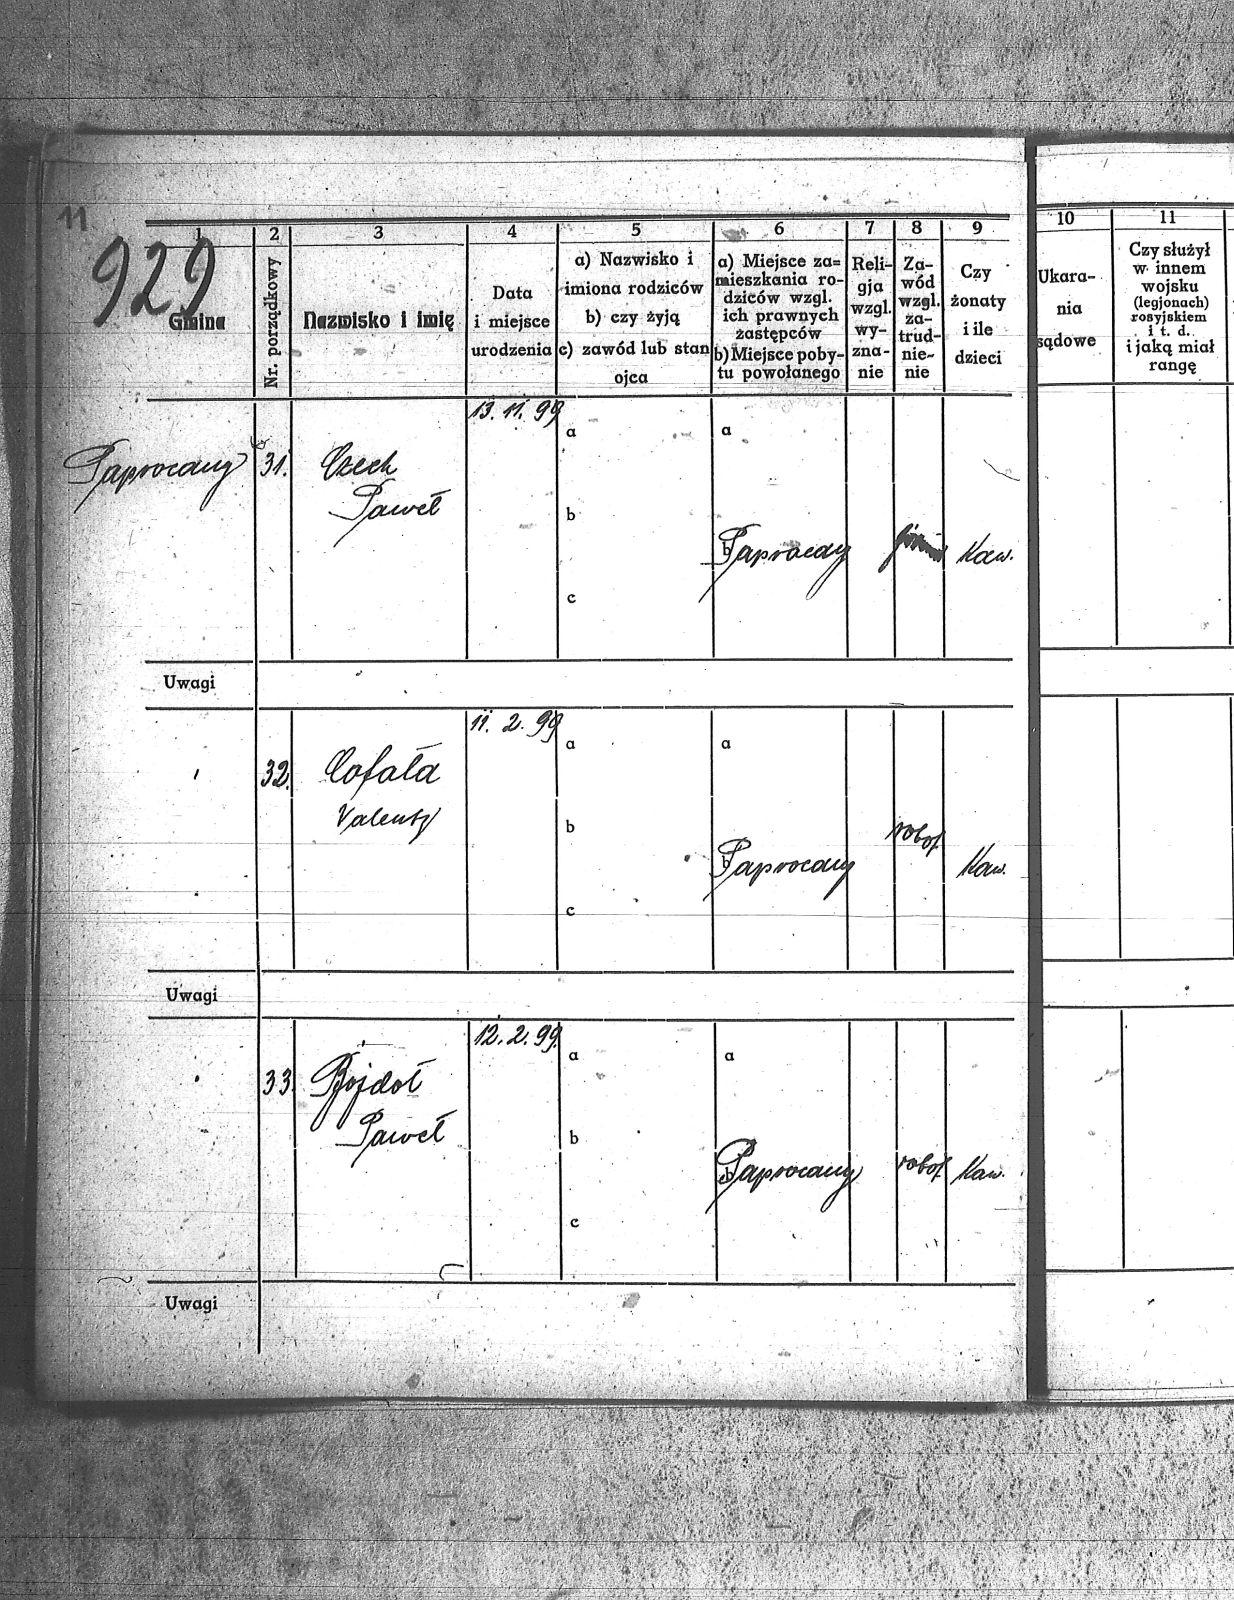 11
929
1
2
3
4
5
6
7
8
9
10
11
Gmina
Nr. porządkowy
Nazwisko i imię
Data
i miejsce
urodzenia
a) Nazwisko i
imiona rodziców
b) czy żyją
c) zawód lub stan
ojca
a) Miejsce za=
mieszkania ro-
dziców wzgl.
ich prawnych
zastępców
b) Miejsce poby-
tu powołanego
Reli-
gja
wzgl.
wy-
zna-
nie
Za-
wód
wzgl.
za-
trud-
nie-
nie
Czy
żonaty
i ile
dzieci
Ukara-
nia
sądowe
Czy służył
w innem
wojsku
(legjonach)
rosyjskiem
i t. d.
i jaką miał
rangę
Paprocany
31.
Czech
Paweł
13. 11. 99
a
b
c
a
b
Paprocany
Kaw.
Uwagi
32.
Cofała
Valenty
11. 2. 99
a
b
c
a
b
Paprocany
robot.
Kaw.
Uwagi
33
Bojdoł
Paweł
12. 2. 99.
a
b
c
a
b
Paprocany
robot.
Kaw.
Uwagi